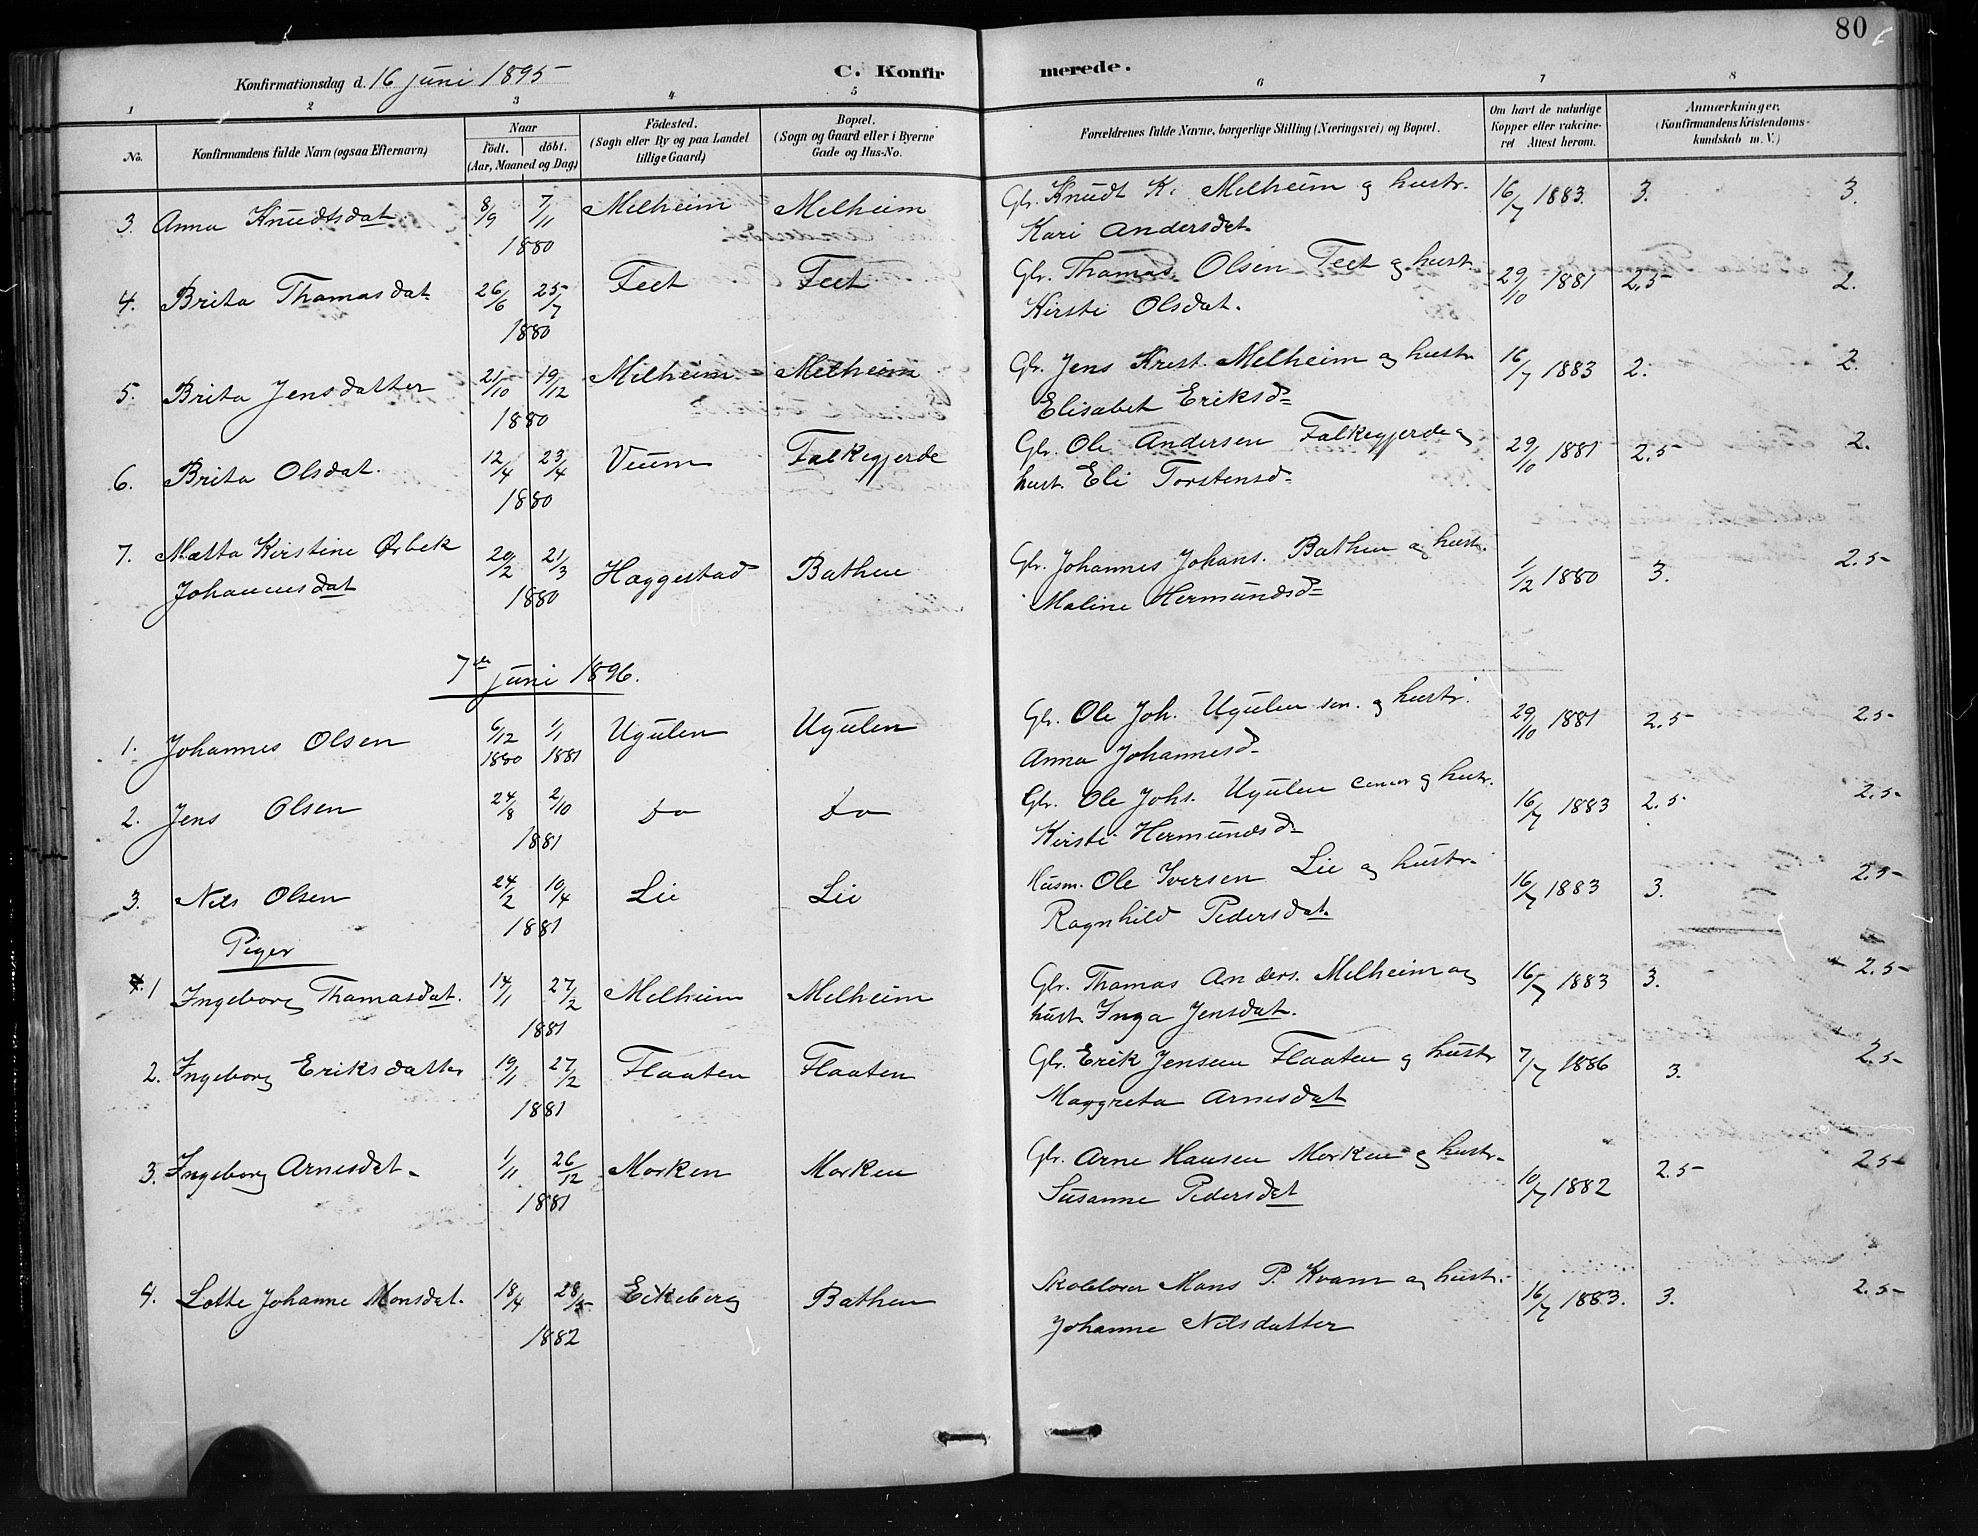 80
Konfirmationsdag d. 16 juni 1895
C. Konfirmerede.
1 2 3 4 5 6 7 8
No. Konfirmandens fulde Navn (ogsaa Efternavn) Naar født. døbt. (Aar, Maaned og Dag) Fødested. (Sogn eller By og paa Landet tillige Gaard) Bopæl. (Sogn og Gaard eller i Byerne Gade og Hus-No. Forældrenes fulde Navne, borgerlige Stilling (Næringsvei) og Bopæl. Om havt de naturlige Kopper eller vakcineret Attest herom. Anmærkninger. (Konfirmandens Kristendomskundskab m. V.)
3. Anna Knudtsdat 8/9 7/11 Melheim Melheim Gbr. Knudt K. Melheim og hustr. 16/7 1883. 3. 3.
1880 Kari Andersdat.
4. Brita Thomasdat 26/6 25/7 Feet Feet Gbr. Thomas Olsen Feet og hust 29/10 1881 2,5 2.
1880 Kirsti Olsdat.
5. Brita Jensdatter 21/10 19/12 Milheim Melheim Gbr. Jens Krest. Melheim og hustr 16/7 1883 2. 2.
1880 Elisabet Eriksd=
6. Brita Olsdat. 12/4 23/4 Veum Falkegjerde Gbr. Ole Andersen Falkegjerde og 29/10 1881 2.5 2.
1880 hust. Eli Torstensd=
7. Mætta Kirstine Ørbek 20/2 21/3 Hæggestad Bathen Gbr. Johannes Johans. Bathen og hust. 1/12 1880 3. 2.5
Johannesdat 1880 Maline Hermundsd=
7de juni 1896.
1. Johannes Olsen 6/12 1/1 Ugulen Ugulen Gbr. Ole Joh. Ugulen sen. og hustr. 29/10 1881 2.5 2.5
1880 1881 Anna Johannesd
2. Jens Olsen 24/8 2/10 Do Do Gbr. Ole Johs. Ugulen og hustr. 16/7 1883 2.5 2.5
1881 Kirsti Hermundsd
3. Nils Olsen 24/2 10/4 Lie Lie Husm. Ole Iversen Lie og hustr. 16/7 1883 3. 2.5
1881 Ragnhild Pedersdat.
Piger
1 Ingeborg Thomasdat. 14/1 27/2 Melheim Melheim Gbr. Thomas Anders. Melheim og 16/7 1883 3. 2.5
1881 hust. Inga Jensdat.
2. Ingeborg Eriksdatter 19/1 27/2 Flaaten Flaaten Gbr. Erik Jensen Flaaten og hustr 7/7 1886 3. 2.5
1881 Maggreta Arnesdat
3. Ingeborg Arnesdat. 1/11 26/12 Morken Morken Gbr. Arne Hansen Morken og hustr. 10/7 1882 2.5 2.5
1881 Susanne Pedersdat
4. Lotte Johanne Monsdat. 18/4 28/5 Eikeberg Bathen Skolelærer Mons P. Kvam og hustr. 16/7 1883. 3. 2.5
1882 Johanne Nilsdatter